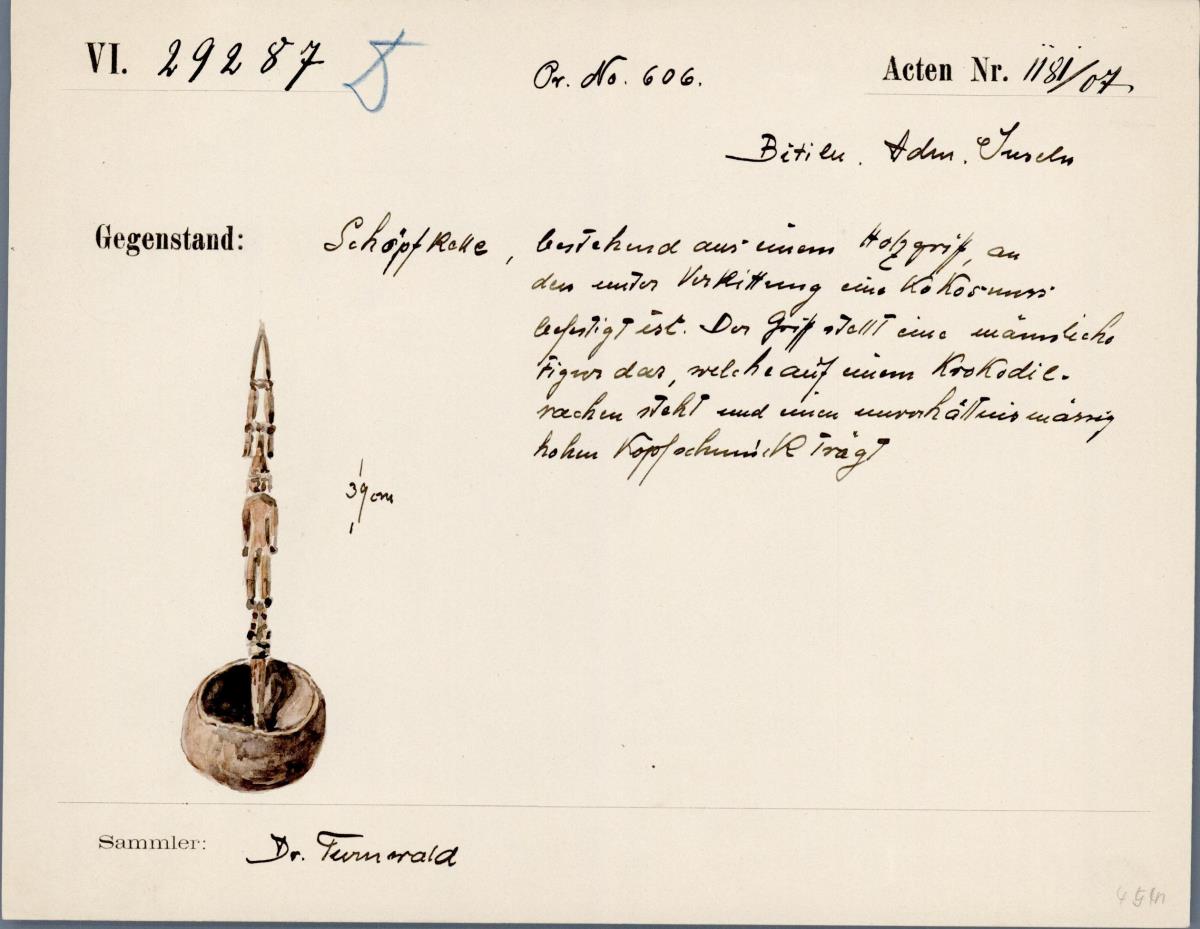 VI. 29287
Pr. No. 606.
Acten Nr. 1181/07
Bitilu. Adm. Inseln
Gegenstand: Schöpfkelle, bestehend aus einem Holzgriff, an
den unter Verkittung eine Kokosnuss
befestigt ist. Der Griff stellt eine männliche
Figur dar, welche auf einem Krokodil-
rachen steht und einen unverhältnismässig
hohen Kopfschmuck trägt
39 cm
Sammler: Dr. Turnwald